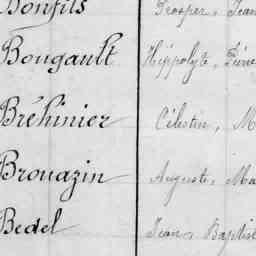 Bonfils Prosper, Jean
Bougault Hippolyte, Pierre
Bréhinier Célestin, M
Brouazin Auguste, Ma
Bedel Jean, Baptis